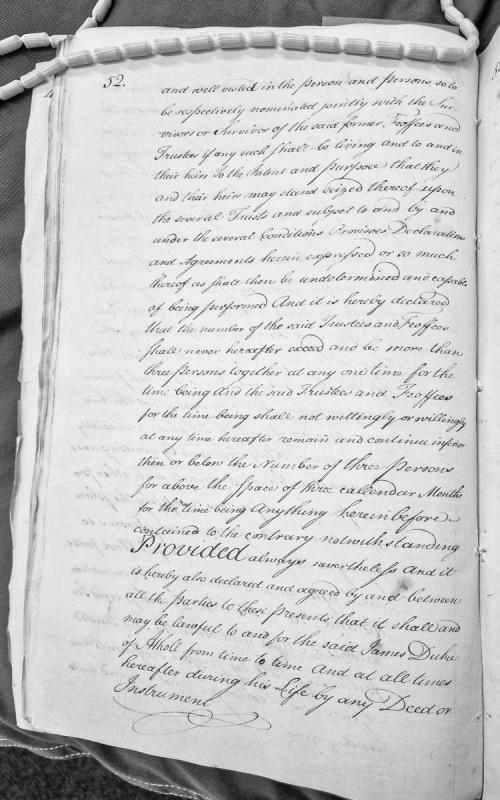 52.
and well vested in the person and persons so to
be respectively nominated jointly with the Sur-
vivors or Survivor of the said former Feoffees and
Trustees if any such shall be living and to and in
their heirs To the Intent and purpose that they
and their heirs may stand seized thereof upon
the several Trusts and subject to and by and
under the several Conditions Provisoes Declarations
and Agreements herein expressed or so much
thereof as shall then be undetermined and capable
of being performed And it is hereby declared
that the number of the said Trustees and Feoffees
shall never hereafter exceed and be more than
three persons together at any one time for the
time being And the said Trustees and Feoffees
for the time being shall not wittingly or willingly
at any time hereafter remain and continue inferior
then or below the Number of three Persons
for above the space of three callendar Months
for the time being Anything herein before
contained to the contrary notwithstanding
Provided always nevertheless and it
is hereby also declared and agreed by and between
all the parties to these presents that it shall and
may be lawful to and for the said James Duke
of Atholl from time to time and at all times
hereafter during his Life by any Deed or
Instrument